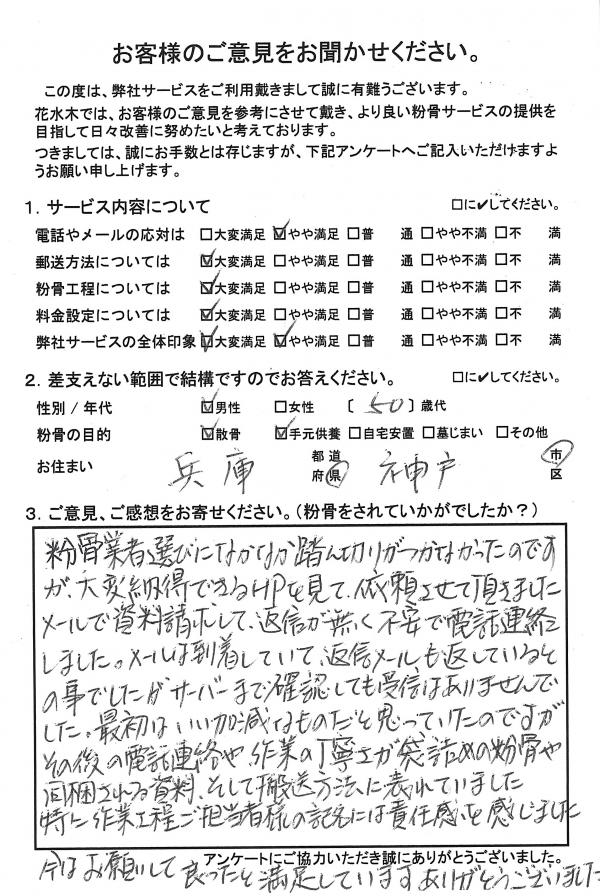 お客様のご意見をお聞かせください。
この度は、弊社サービスをご利用戴きまして誠に有難うございます。
花水木では、お客様のご意見を参考にさせて戴き、より良い粉骨サービスの提供を
目指して日々改善に努めたいと考えております。
つきましては、誠にお手数とは存じますが、下記アンケートへご記入いただけますよ
うお願い申し上げます。
1. サービス内容について □に✔してください。
電話やメールの応対は □大変満足 ☑やや満足 □普 通 □やや不満 □不 満
郵送方法については ☑大変満足 □やや満足 □普 通 □やや不満 □不 満
粉骨工程については ☑大変満足 □やや満足 □普 通 □やや不満 □不 満
料金設定については ☑大変満足 □やや満足 □普 通 □やや不満 □不 満
弊社サービスの全体印象 ☑大変満足 ☑やや満足 □普 通 □やや不満 □不 満
2. 差支えない範囲で結構ですのでお答えください。 □に✔してください。
性別 / 年代 ☑男性 □女性 〔 50 〕歳代
粉骨の目的 ☑散骨 ☑手元供養 □自宅安置 □墓じまい □その他
お住まい 兵庫 都道府県 神戸 市区
3. ご意見、ご感想をお寄せください。(粉骨をされていかがでしたか?)
粉骨業者選びになかなか踏ん切りがつかなかったのです
が、大変納得できるHPを見て、依頼させて頂きました
メールで資料請求して、返信が無く不安で電話連絡
しました。メールは到着していて、返信メールも返していると
の事でしたがサーバーまで確認しても受信はありませんで
した。最初はいい加減なものだと思っていたのですが
その後の電話連絡や作業の丁寧さが袋詰めの粉骨や
同梱される資料、そして搬送方法に表れていました
特に作業工程ご担当者様の記名には責任感を感じました
今はお願いして良ったと満足しています ありがとうございました
アンケートにご協力いただき誠にありがとうございました。